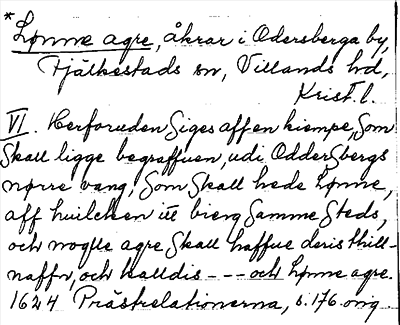 *Lønne agre, åkrar i Odersberga by,
Fjälkestads sn, Villands hd,
Krist. l.
VI. Herforuden Siges aff en kiempe, Som
Skall ligge begraffuen, udi OdderSbergs
nørre vang, Som Skall hede Lønne,
aff huilcken it bierg Samme Steds,
och noglle agre Skall haffue deris thill-
naffn, och kalldis - - - och Lønne agre.
1624 Prästrelationerna, s. 176. orig